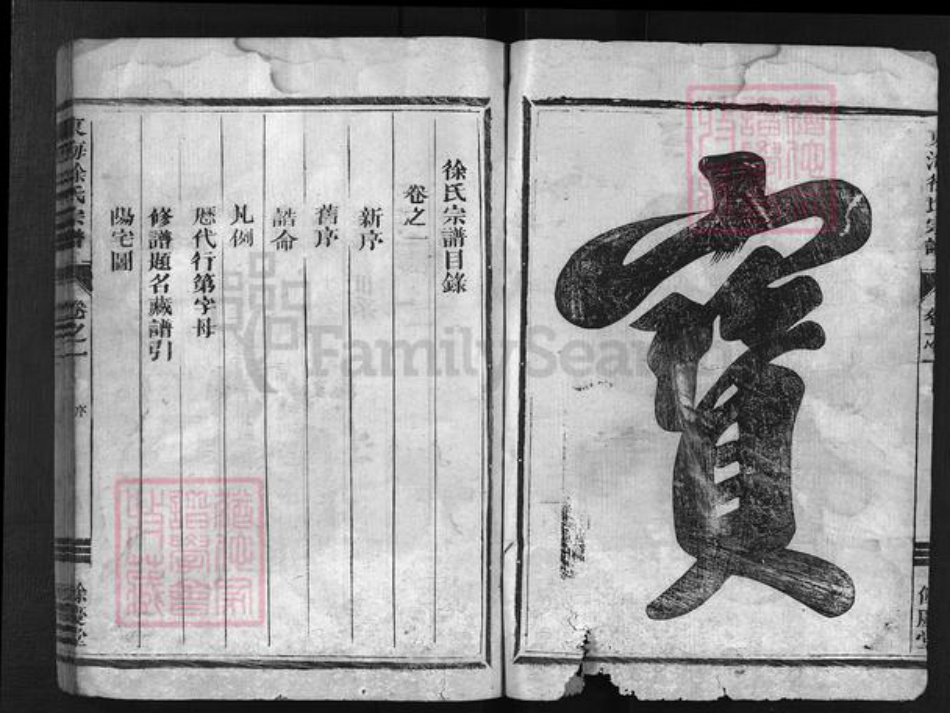 寶
徐氏宗譜目錄
卷之一
新序
舊序
誥命
凡例
歷代行第字母
修譜題名藏譜引
陽宅圖
東海徐氏宗譜
卷之一
序
餘慶堂
FamilySearch